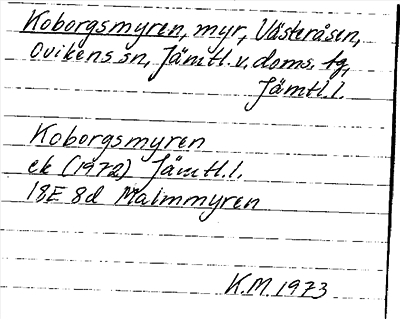 Koborgsmyren, myr, Västeråsen,
Ovikens sn, Jämtl. v. doms. tg,
Jämtl. l.
Koborgsmyren
ek (1972) Jämtl. l.
18E 8d Malmmyren
K.M. 1973